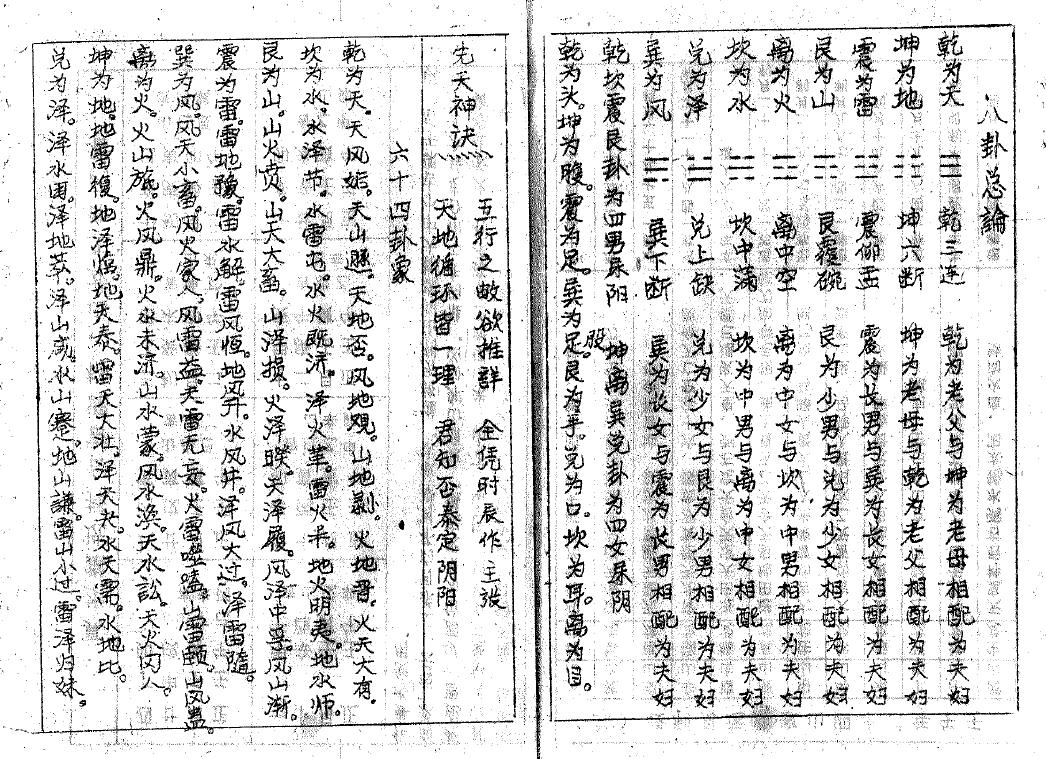 八卦总論
乾为天 ☰ 乾三连 乾为老父与坤为老母相配为夫妇
坤为地 ☷ 坤六断 坤为老母与乾为老父相配为夫妇
震为雷 ☳ 震仰盂 震为长男与巽为长女相配为夫妇
艮为山 ☶ 艮覆碗 艮为少男与兑为少女相配为夫妇
离为火 ☲ 离中空 离为中女与坎为中男相配为夫妇
坎为水 ☵ 坎中满 坎为中男与离为中女相配为夫妇
兑为泽 ☱ 兑上缺 兑为少女与艮为少男相配为夫妇
巽为风 ☴ 巽下断 巽为长女与震为长男相配为夫妇
乾坎震艮卦为四男属阳 坤离巽兑卦为四女属阴
乾为头。坤为腹。震为足。巽为足。股艮为手。兑为口。坎为耳。离为目。
先天神诀 五行之敵欲推詳 全凭时辰作主張
天地循环皆一理 君知否泰定阴阳
六十四卦象
乾为天。天风姤。天山遯。天地否。风地观。山地剥。火地晋。火天大有。
坎为水。水泽节。水雷屯。水火既济。泽火革。雷火丰。地火明夷。地水师。
艮为山。山火贲。山天大畜。山泽損。火泽睽。天泽履。风泽中孚。风山渐。
震为雷。雷地豫。雷水解。雷风恒。地风升。水风井。泽风大过。泽雷隨。
巽为风。风天小畜。风火家人。风雷益。天雷无妄。火雷噬嗑。山雷頤。山风蛊。
离为火。火山旅。火风鼎。火水未济。山水蒙。风水涣。天水訟。天火同人。
坤为地。地雷復。地泽临。地天泰。雷天大壮。泽天夬。水天需。水地比。
兑为泽。泽水困。泽地萃。泽山咸。水山蹇。地山謙。雷山小过。雷泽归妹。